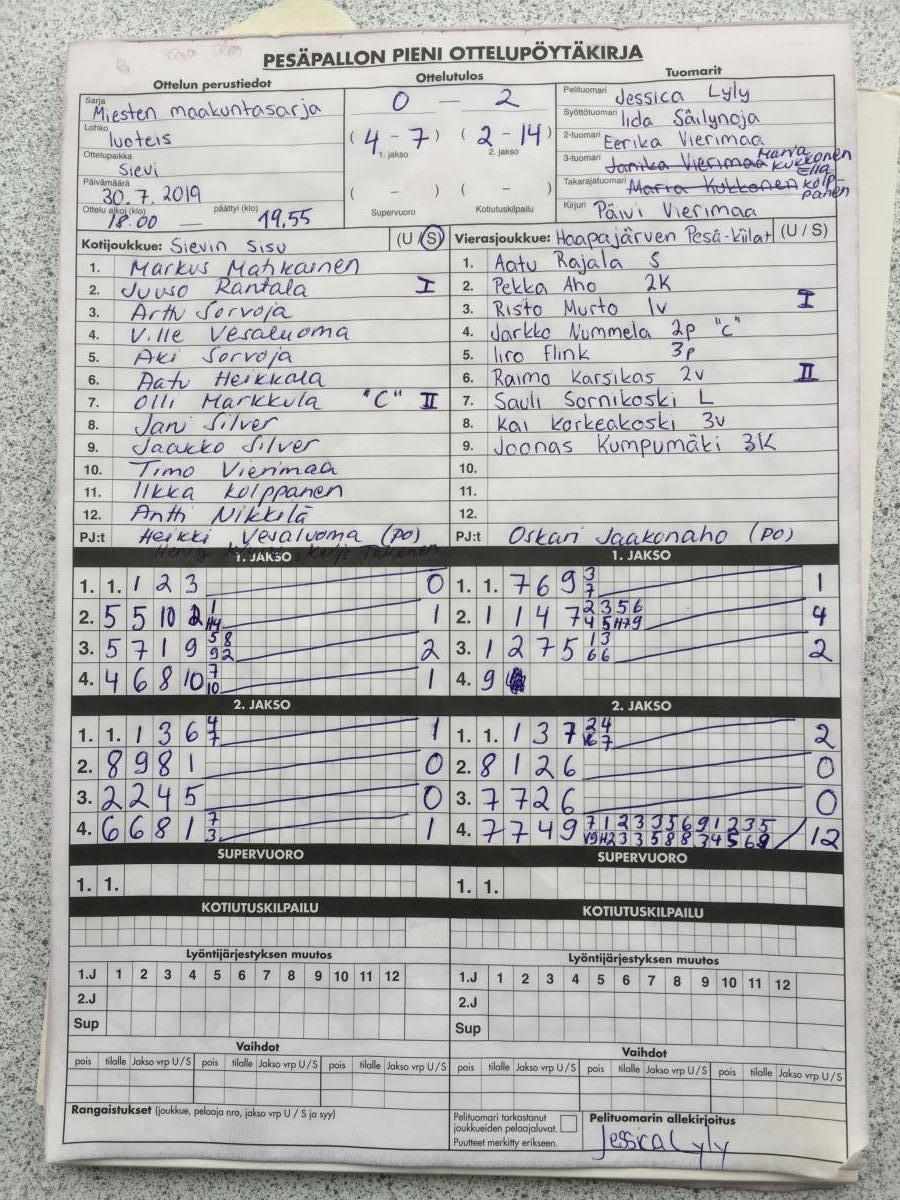 PESÄPALLON PIENI OTTELUPÖYTÄKIRJA
Ottelun perustiedot
Sarja
Miesten maakuntasarja
Lohko
luoteis
Ottelupaikka
Sievi
Päivämäärä
30.7.2019
Ottelu alkoi (klo) päättyi (klo)
18.00 — 19.55
Ottelutulos
0 — 2
( 4 - 7 ) ( 2 - 14 )
1. jakso 2. jakso
( - ) ( - )
Supervuoro Kotiutuskilpailu
Tuomarit
Pelituomari Jessica Lyly
Syöttötuomari Iida Säilynoja
2-tuomari Eerika Vierimaa
3-tuomari Janika Vierimaa Marra Kukkonen
Takarajatuomari Marra Kukkonen Ella Kolppanen
Kirjuri Päivi Vierimaa
Kotijoukkue: Sievin Sisu (U / S)
1. Markus Matikainen
2. Juuso Rantala I
3. Arttu Sorvoja
4. Ville Vesaluoma
5. Aki Sorvoja
6. Aatu Heikkala
7. Olli Markkula "C" II
8. Jani Silver
9. Jaakko Silver
10. Timo Vierimaa
11. Ilkka Kolppanen
12. Antti Nikkilä
PJ:t Heikki Vesaluoma (PO)
Vierasjoukkue: Haapajärven Pesä-Kiilat (U / S)
1. Aatu Rajala S
2. Pekka Aho 2K
3. Risto Murto 1v I
4. Jarkko Nummela 2p "C"
5. Iiro Flink 3p
6. Raimo Karsikas 2v II
7. Sauli Sornikoski L
8. Kai Korkeakoski 3v
9. Joonas Kumpumäki 3K
10.
11.
12.
PJ:t Oskari Jaakonaho (PO)
1. JAKSO
1. 1. 1 2 3 0
2. 5 5 10 2 1
3. 5 7 1 9 5 8 2
9 2
4. 4 6 8 10 7 1
10
2. JAKSO
1. 1. 1 3 6 4 1
7
2. 8 9 8 1 0
3. 2 2 4 5 0
4. 6 6 8 1 7 1
3
SUPERVUORO
1. 1.
KOTIUTUSKILPAILU
Lyöntijärjestyksen muutos
1.J 1 2 3 4 5 6 7 8 9 10 11 12
2.J
Sup
Vaihdot
pois tilalle Jakso vrp U / S pois tilalle Jakso vrp U / S pois tilalle Jakso vrp U / S
Rangaistukset (joukkue, pelaaja nro, jakso vrp U / S ja syy)
1. JAKSO
1. 1. 7 6 9 3 1
7
2. 1 1 4 7 2 3 5 6 4
3. 1 2 7 5 1 3 2
6 6
4. 9
2. JAKSO
1. 1. 1 3 7 2 4 2
2. 8 1 2 6 0
3. 7 7 2 6 0
4. 7 7 4 9 7 1 2 3 3 5 6 9 1 2 3 5 12
SUPERVUORO
1. 1.
KOTIUTUSKILPAILU
Lyöntijärjestyksen muutos
1.J 1 2 3 4 5 6 7 8 9 10 11 12
2.J
Sup
Vaihdot
pois tilalle Jakso vrp U / S pois tilalle Jakso vrp U / S pois tilalle Jakso vrp U / S
Pelituomari tarkastanut
joukkueiden pelaajaluvat.
Puutteet merkitty erikseen.
Pelituomarin allekirjoitus
Jessica Lyly